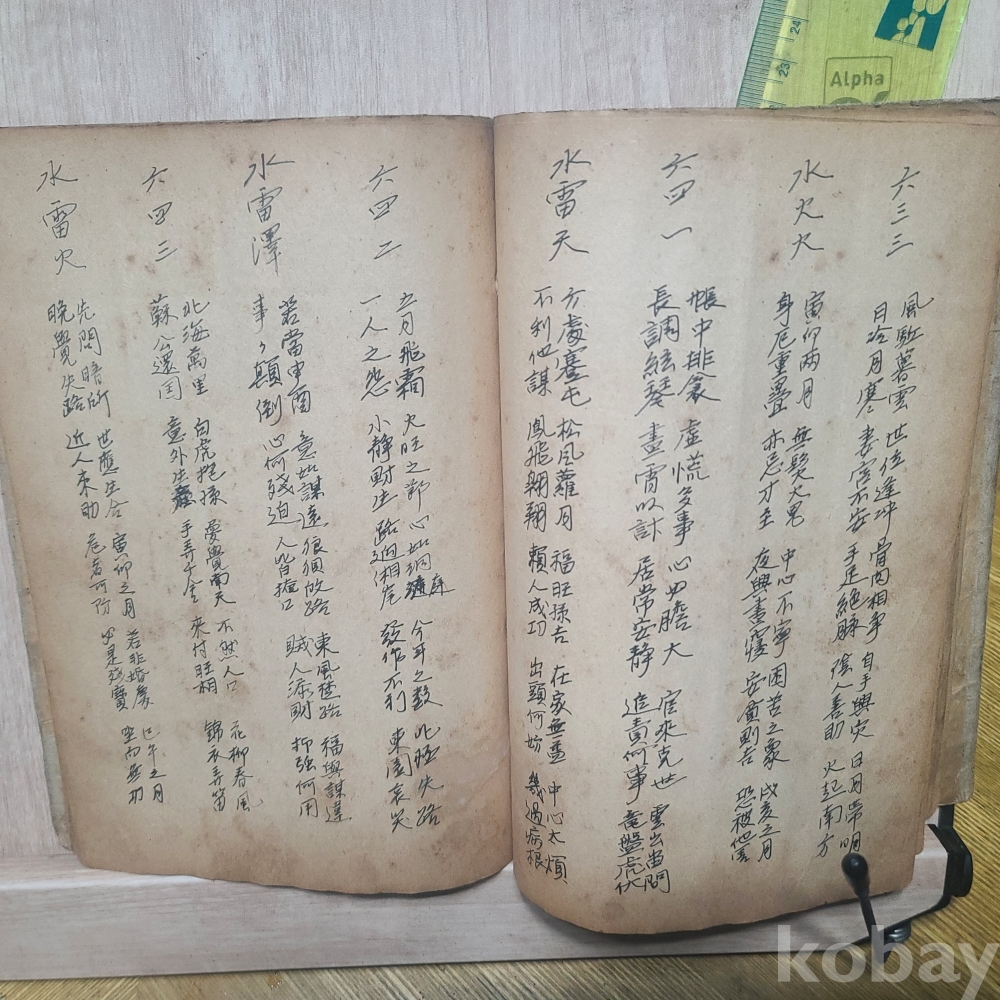 六三三
風駈暮雲 世位逢冲 骨肉相爭 自手興灾 日月常明
日冷月寒 妻宮不安 手足絶脉 陰人善助 火起南方
水火火
寅卯両月 無髮大男 中心不寧 困苦之象 戌亥之月
身厄重疊 亦忌才全 夜興晝寢 安貧則吉 恐被他害
六四一
帳中排衾 虛慌多事 心必膽大 官來克世 雲出岩間
長調絃琴 晝霄以計 居常安静 追責何事 竜盤虎伏
水雷天
六處蹇屯 松風蘿月 福旺 吉 在家無益 中心太煩
不利他謀 鳳飛翔翔 頼人成功 出頭何妨 幾過病根
六四二
五月飛霜 火旺之節 心如洞庭 今年之数 北極失路
一人之怨 小静財生 路過湘 發作不利 東園哀哭
水雷澤
若當申酉 意如謀遠 故路 東風楚路 福興謀達
事々顛倒 心何殘迫 人皆掩口 賊人添財 抑强何用
六四三
北海萬里 白虎抱孫 憂覺南天 不然人口 花柳春風
蘇公還国 意外生 手弄千金 來付旺相 錦衣弄笛
水雷火
先問暗斷 世應生合 寅卯之月 若非婚慶 巳午之月
晩覺失路 近人来助 危者可防 必是 坐而無功